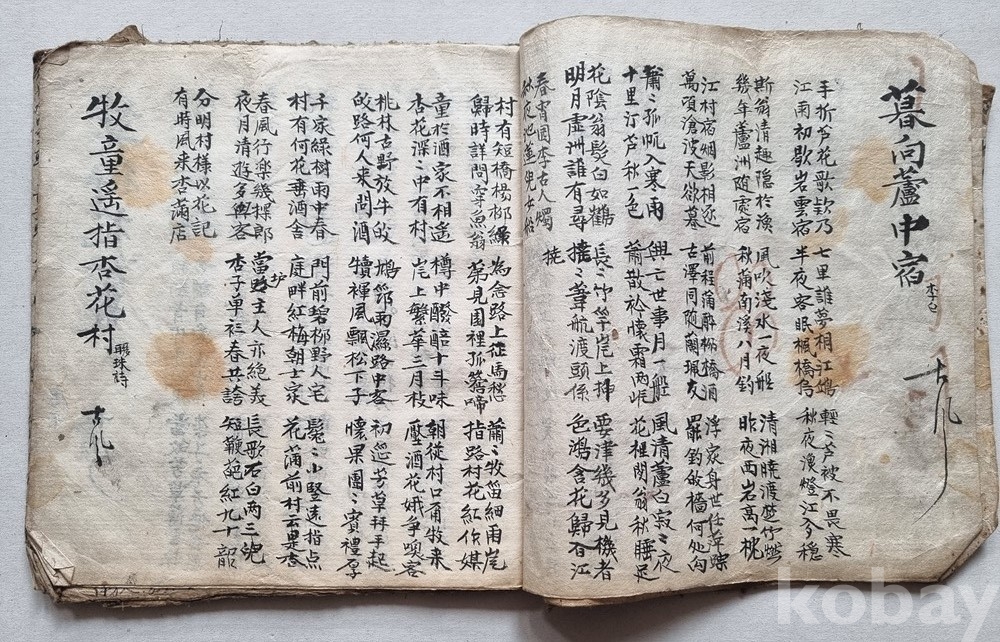 暮向蘆中宿
古風
手折芦花歌欸乃 七里誰夢相江 輕〻芦被不畏寒
江南初歇岩雲宿 半夜客眠楓橋烏 秋夜漁燈江多穩
斯翁清趣隐於漁 風吹淺水一夜船 清湘曉渡楚竹燃
幾年蘆洲随處宿 秋蒲南溪八月釣 昨夜西岩高一枕
江村宿烟影相逐 前程蒲醉柳橋酒 浮家身世任萍蹤
萬頃滄波天欲暮 古澤同随蘭珮友 罷釣欹檣何処勾
蕭〻孤帆入寒雨 興亡世事月一船 風清蘆白寂〻夜
十里汀芦秋一色 蕭散衿懷霜两岸 花裡問翁秋睡足
花陰翁髪白如鶴 長〻竹竿岸上掃 要津幾多見機者
明月虛洲誰有尋 搖〻葦航渡頭係 色鴻含花歸春江
春宵園李古人燭
秋夜池蓮兒女船
村有短橋楊柳綠 為念路上征馬愁 蕭〻牧笛細雨崖
歸時詳問穿魚翁 第見園裡孤鶯啼 指路村花紅作媒
童於酒家不相遠 樽中醱醅十斗味 朝從村口角牧来
杏花深〻中有村 岸上繁華三月枝 壓酒花娥爭喚客
桃林古野放牛皈 鳩節雨濕路中客 初逕芳草拜手起
皈路何人来問酒 犢褌風飄松下子 懷果團〻賓禮厚
千家綠樹雨中春 門前碧柳野人宅 髧〻小竪遠指点
村有何花垂酒舍 庭畔紅梅朝士家 花蒲前村云是杏
春風行樂幾探郎 當壚主人亦絶義 長歌石白两三
夜月清遊多舞客 杏子单衫春共誇 短鞭葩紅九十韶
分明村様以花記
有時風来杏滿店
牧童遥指杏花村
古風
kobay